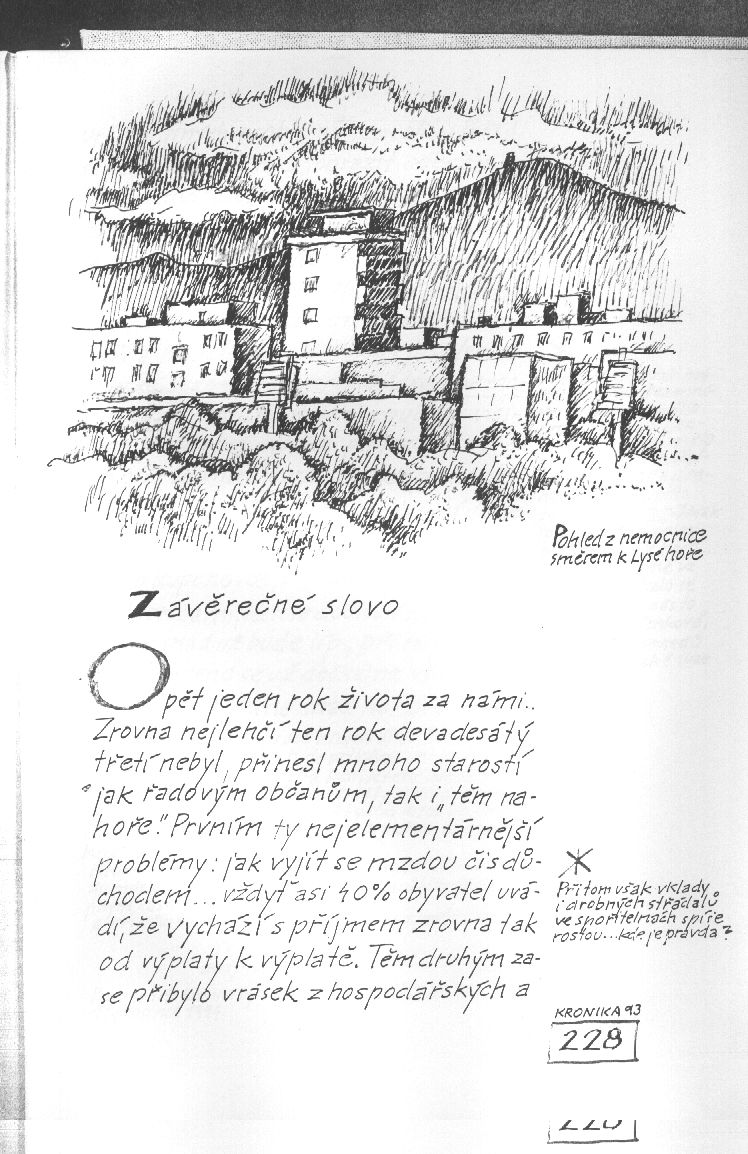 Pohled z nemocnice
směrem k Lysé hoře
Závěrečné slovo
Opět jeden rok života za námi..
Zrovna nejlehčí ten rok devadesátý
třetí nebyl, přinesl mnoho starostí
jak řadovým občanům, tak i „těm na-
hoře." Prvním ty nejelementárnější
problémy: jak vyjít se mzdou či s dů-
chodem... vždyť asi 40% obyvatel uvá-
dí, že vychází s příjmem zrovna tak
od výplaty k výplatě. Těm druhým za-
se přibylo vrásek z hospodářských a
Přitom však vklady
i drobných střádalů
ve spořitelnách spíše
rostou...kde je pravda?
KRONIKA 93
228